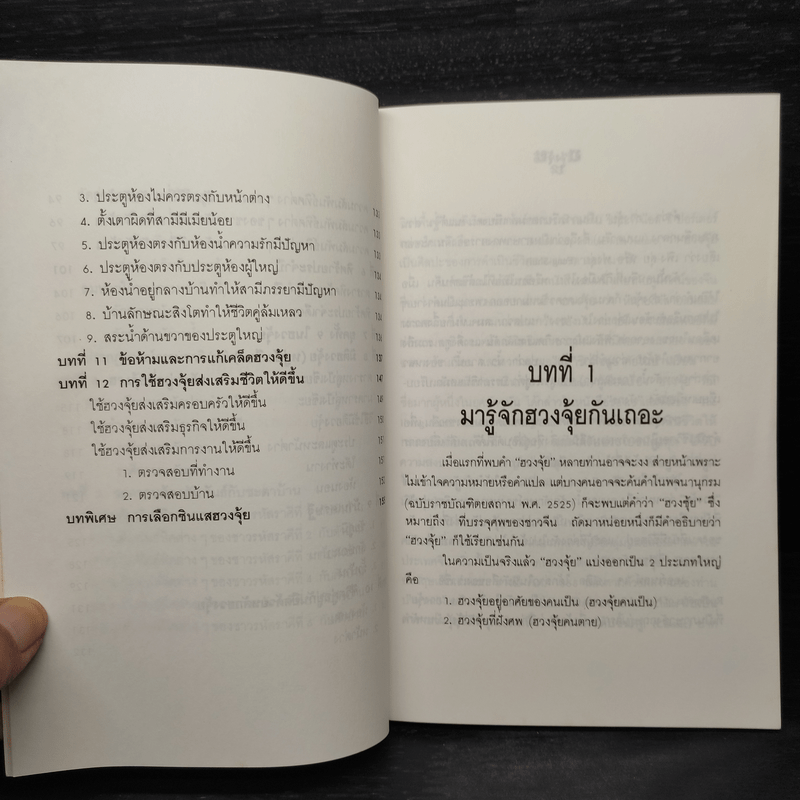 3. ประตูห้องไม่ควรตรงกับหน้าต่าง
4. ตั้งเตาผิดที่สามีมีเมียน้อย
5. ประตูห้องตรงกับห้องน้ำความรักมีปัญหา
6. ประตูห้องตรงกับประตูห้องผู้ใหญ่
7. ห้องน้ำอยู่กลางบ้านทำให้สามีภรรยามีปัญหา
8. บ้านลักษณะสิงโตทำให้ชีวิตคู่ล้มเหลว
9. สระน้ำด้านขวาของประตูใหญ่
บทที่ 11 ข้อห้ามและการแก้เคล็ดฮวงจุ้ย
บทที่ 12 การใช้ฮวงจุ้ยส่งเสริมชีวิตให้ดีขึ้น
ใช้ฮวงจุ้ยส่งเสริมครอบครัวให้ดีขึ้น
ใช้ฮวงจุ้ยส่งเสริมธุรกิจให้ดีขึ้น
ใช้ฮวงจุ้ยส่งเสริมการงานให้ดีขึ้น
1. ตรวจสอบที่ทำงาน
2. ตรวจสอบบ้าน
บทพิเศษ การเลือกซินแสฮวงจุ้ย
บทที่ 1
มารู้จักฮวงจุ้ยกันเถอะ
เมื่อแรกที่พบคำ "ฮวงจุ้ย" หลายท่านอาจจะงง ส่ายหน้าเพราะ
ไม่เข้าใจความหมายหรือคำแปล แต่บางคนอาจจะค้นคำในพจนานุกรม
(ฉบับราชบัณฑิตยสถาน พ.ศ. 2525) ก็จะพบแต่คำว่า "ฮวงซุ้ย" ซึ่ง
หมายถึง ที่บรรจุศพของชาวจีน ถัดมาหน่อยหนึ่งก็มีคำอธิบายว่า
"ฮวงจุ้ย" ก็ใช้เรียกเช่นกัน
ในความเป็นจริงแล้ว "ฮวงจุ้ย" แบ่งออกเป็น 2 ประเภทใหญ่
คือ
1. ฮวงจุ้ยอยู่อาศัยของคนเป็น (ฮวงจุ้ยคนเป็น)
2. ฮวงจุ้ยที่ฝังศพ (ฮวงจุ้ยคนตาย)